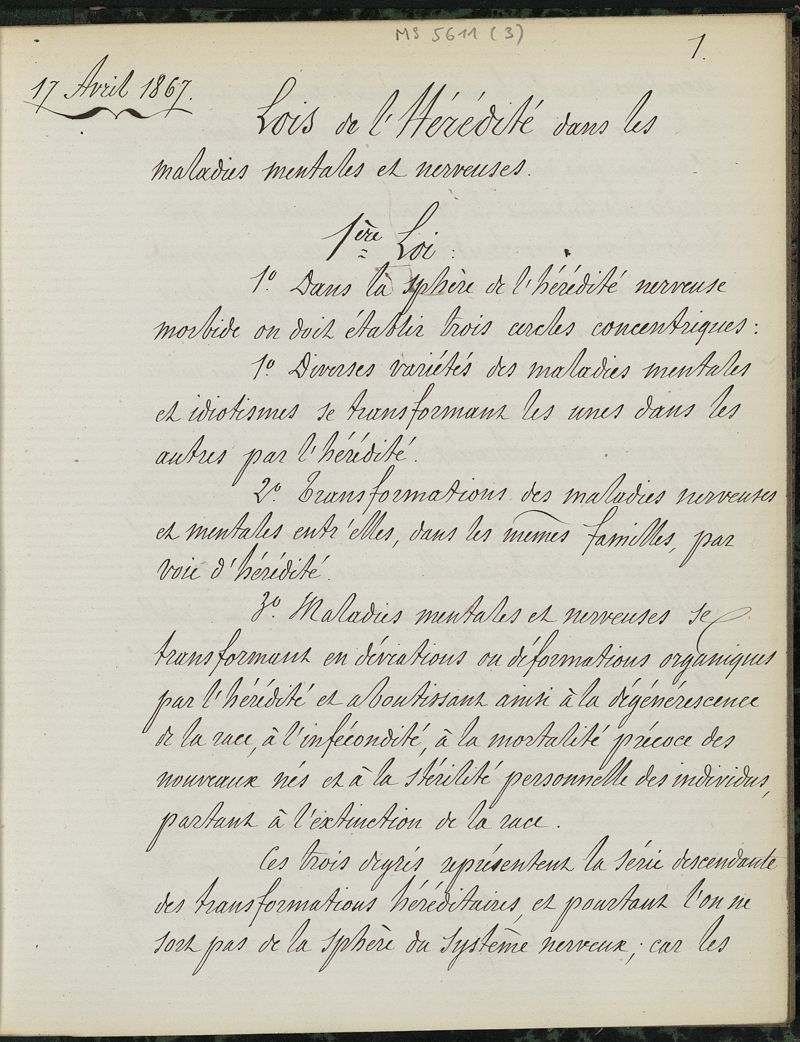 MS 5611 (3)
1.
17 Avril 1867.
Lois de l'Hérédité dans les
maladies mentales et nerveuses.
1ère Loi :
1º Dans la sphère de l'hérédité nerveuse
morbide on doit établir trois cercles concentriques :
1º Diverses variétés des maladies mentales
et idiotismes se transformant les unes dans les
autres par l'hérédité.
2º Transformations des maladies nerveuses
et mentales entr'elles, dans les mêmes familles, par
voie d'hérédité.
3º Maladies mentales et nerveuses se
transformant en déviations ou déformations organiques
par l'hérédité et aboutissant ainsi à la dégénérescence
de la race, à l'infécondité, à la mortalité précoce des
nouveaux nés et à la stérilité personnelle des individus,
partant à l'extinction de la race.
Ces trois degrés représentent la série descendante
des transformations héréditaires, et pourtant l'on ne
sort pas de la sphère du système nerveux ; car les